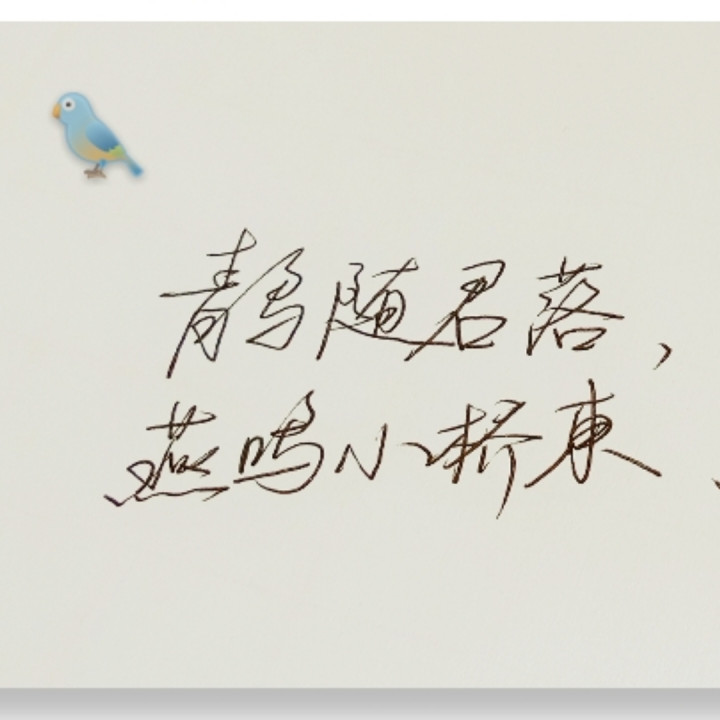 青鸟随君落，
燕鸣小桥東